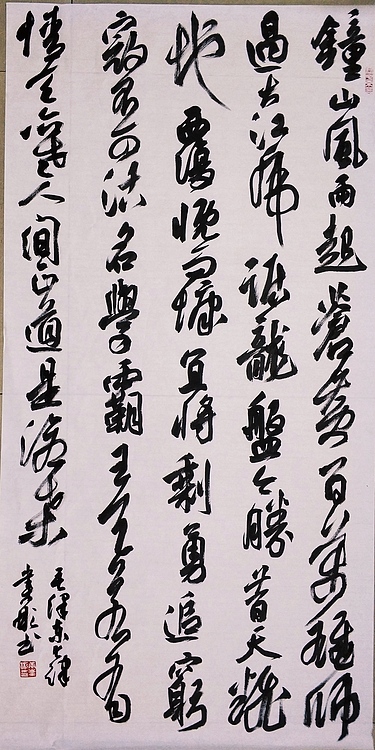 鐘山風雨起蒼黄百萬雄師
過大江虎踞龍盤今勝昔天翻
地覆慨而慷宜將剩勇追窮
寇不可沽名學霸王天若有
情天亦老人间正道是滄桑
毛澤東七律
书